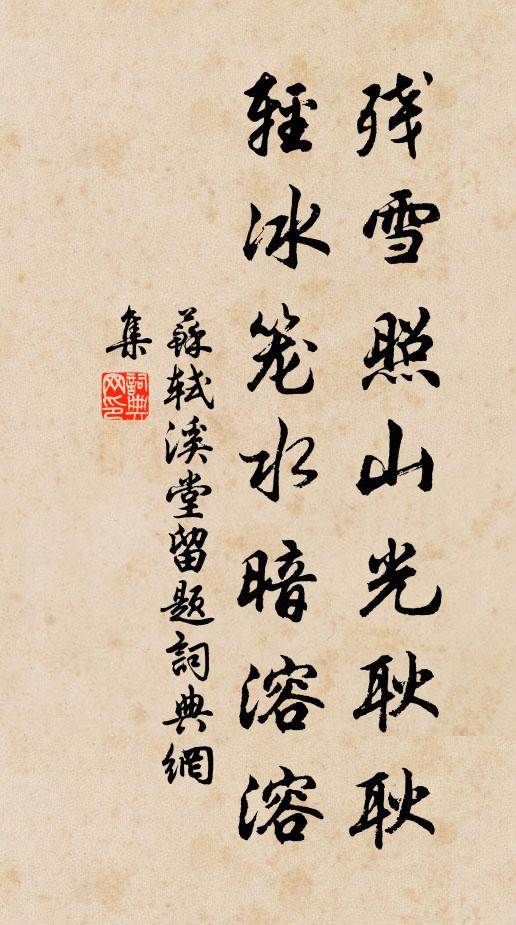 残雪照山光耿耿
轻冰笼水暗溶溶
蘇軾溪堂留題詞典網
集
詞典
网印